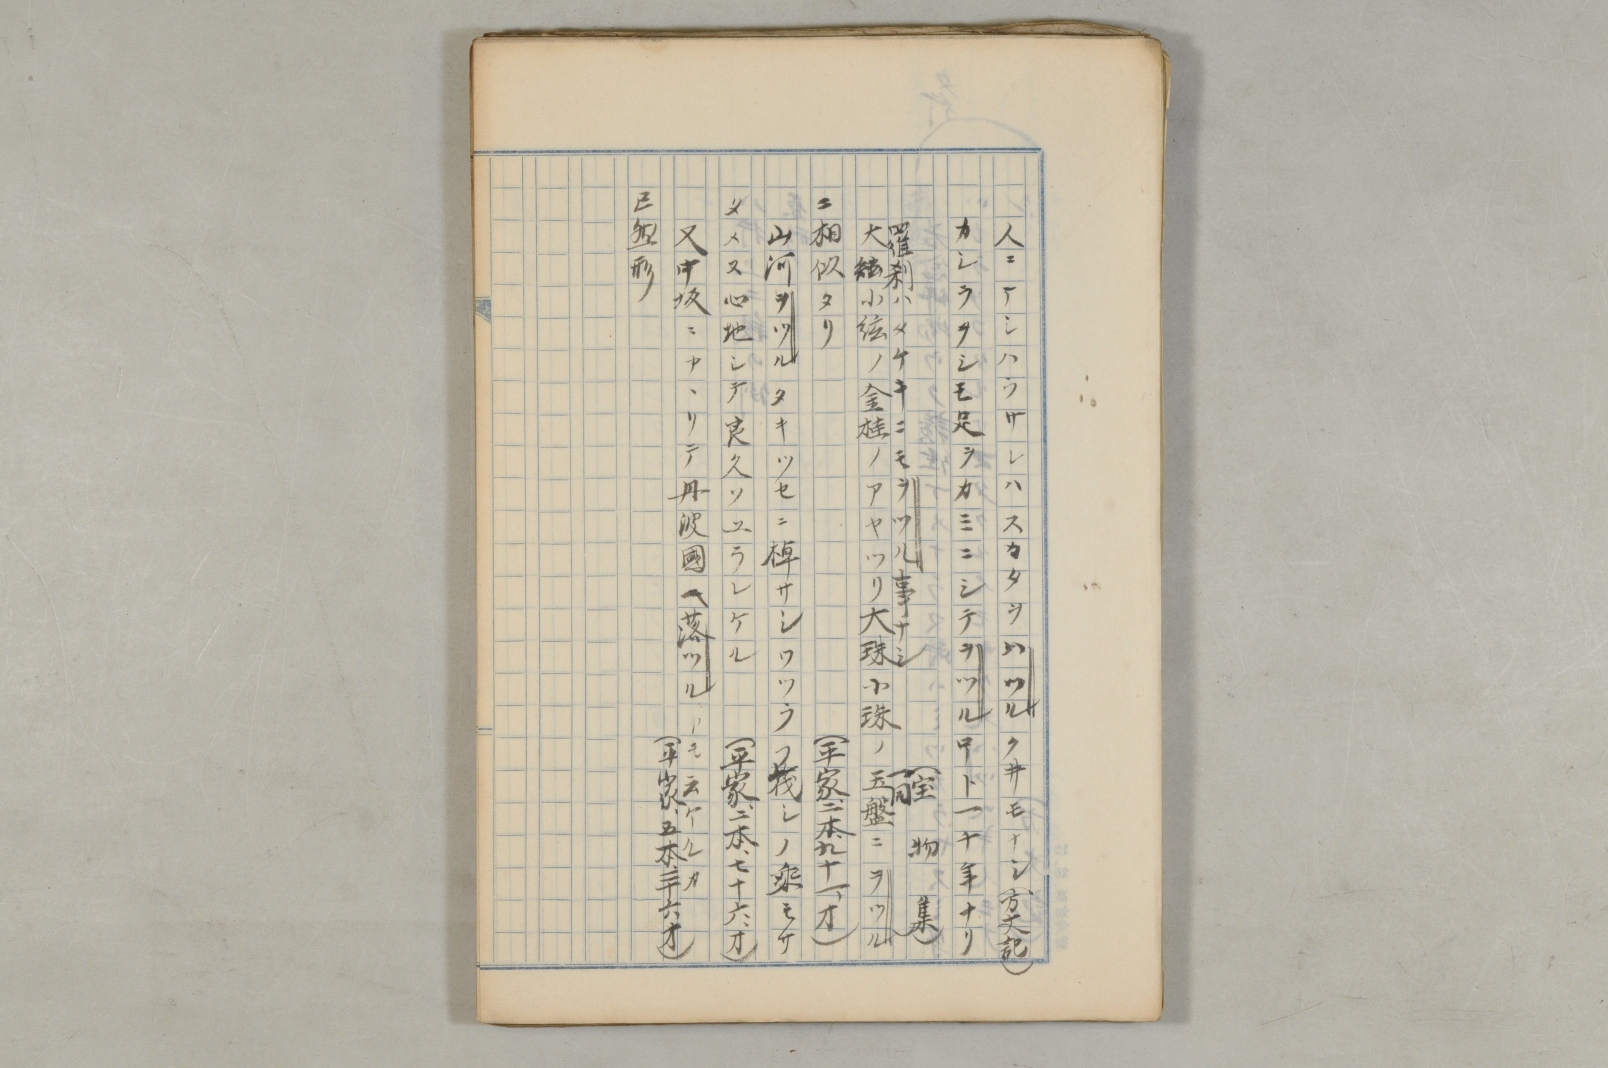 人ニアシハウサレハスカタヲハツルクヰモナシ(方丈記)
カシラヲシモ足ヲカミニシテヲツル
年ナリ
羅刹ハメケキニモヲツル事ナシ
(宝物集)
大絃小絃ノ金桂ノアヤツリ大珠小珠ノ玉盤ニヲツル
ニ相似タリ(平家、二本、九十一、オ)
山河ヲツルタキツセニ棹サシワツラフ筏シノ乗モケ
メメヌ心地シテ良久ソユラレケル(平家、二本、七十六、オ)
又中坂ニカヽリテ丹波國ヘ落ツルトモ云ケルカ(平家、五本、三十六オ)
已然形